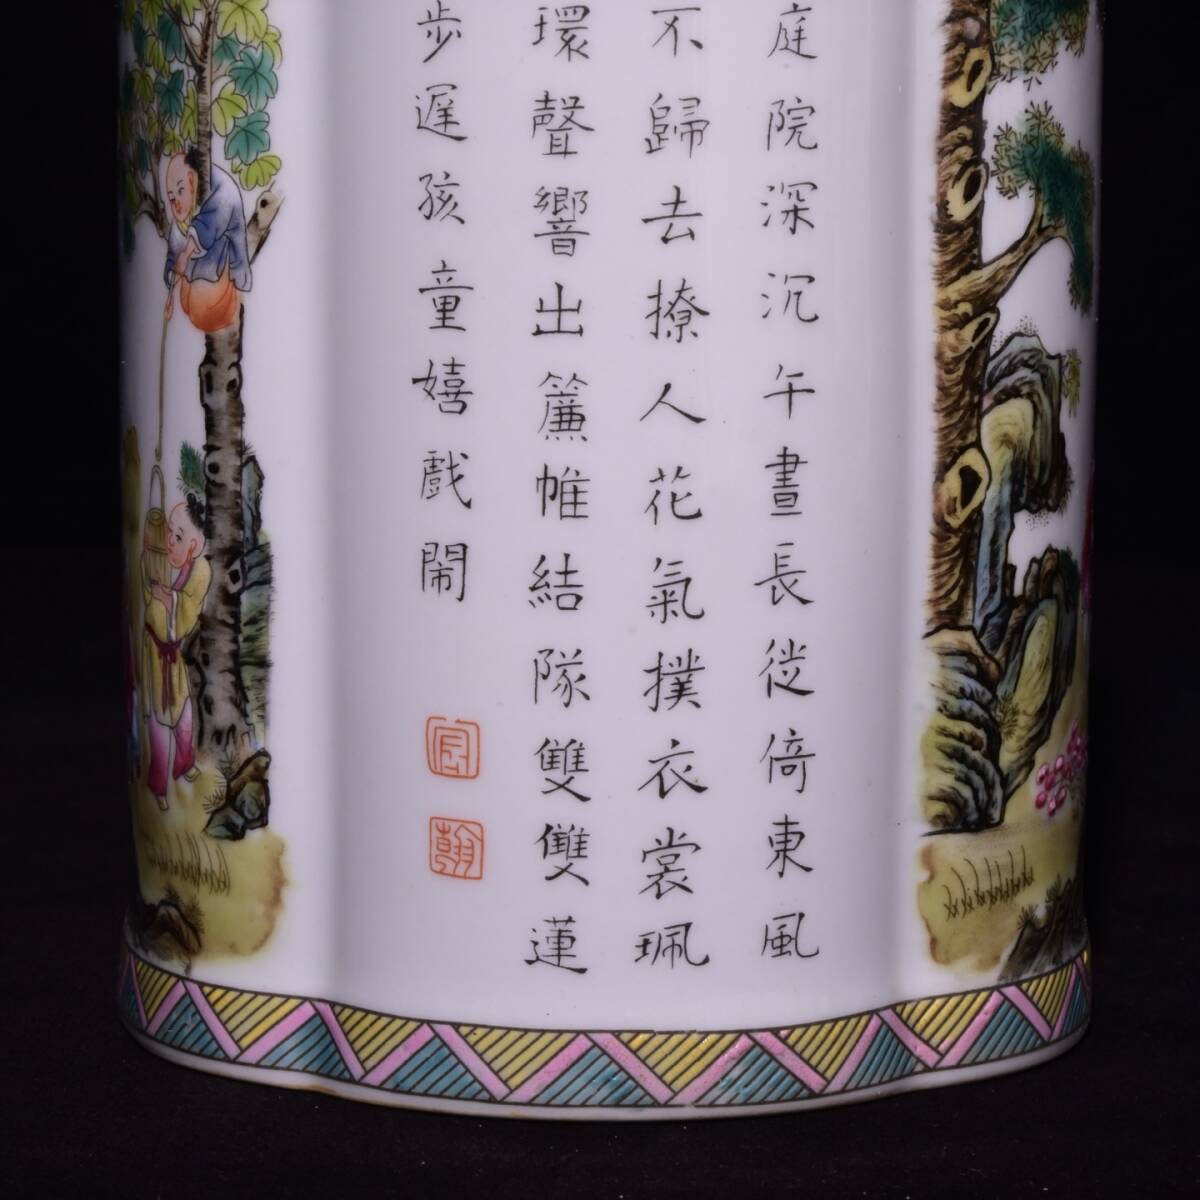 庭院深沉午晝長從倚東風
不歸去撩人花氣撲衣裳珮
環聲響出簾帷結隊雙雙蓮
步遲孩童嬉戲鬧